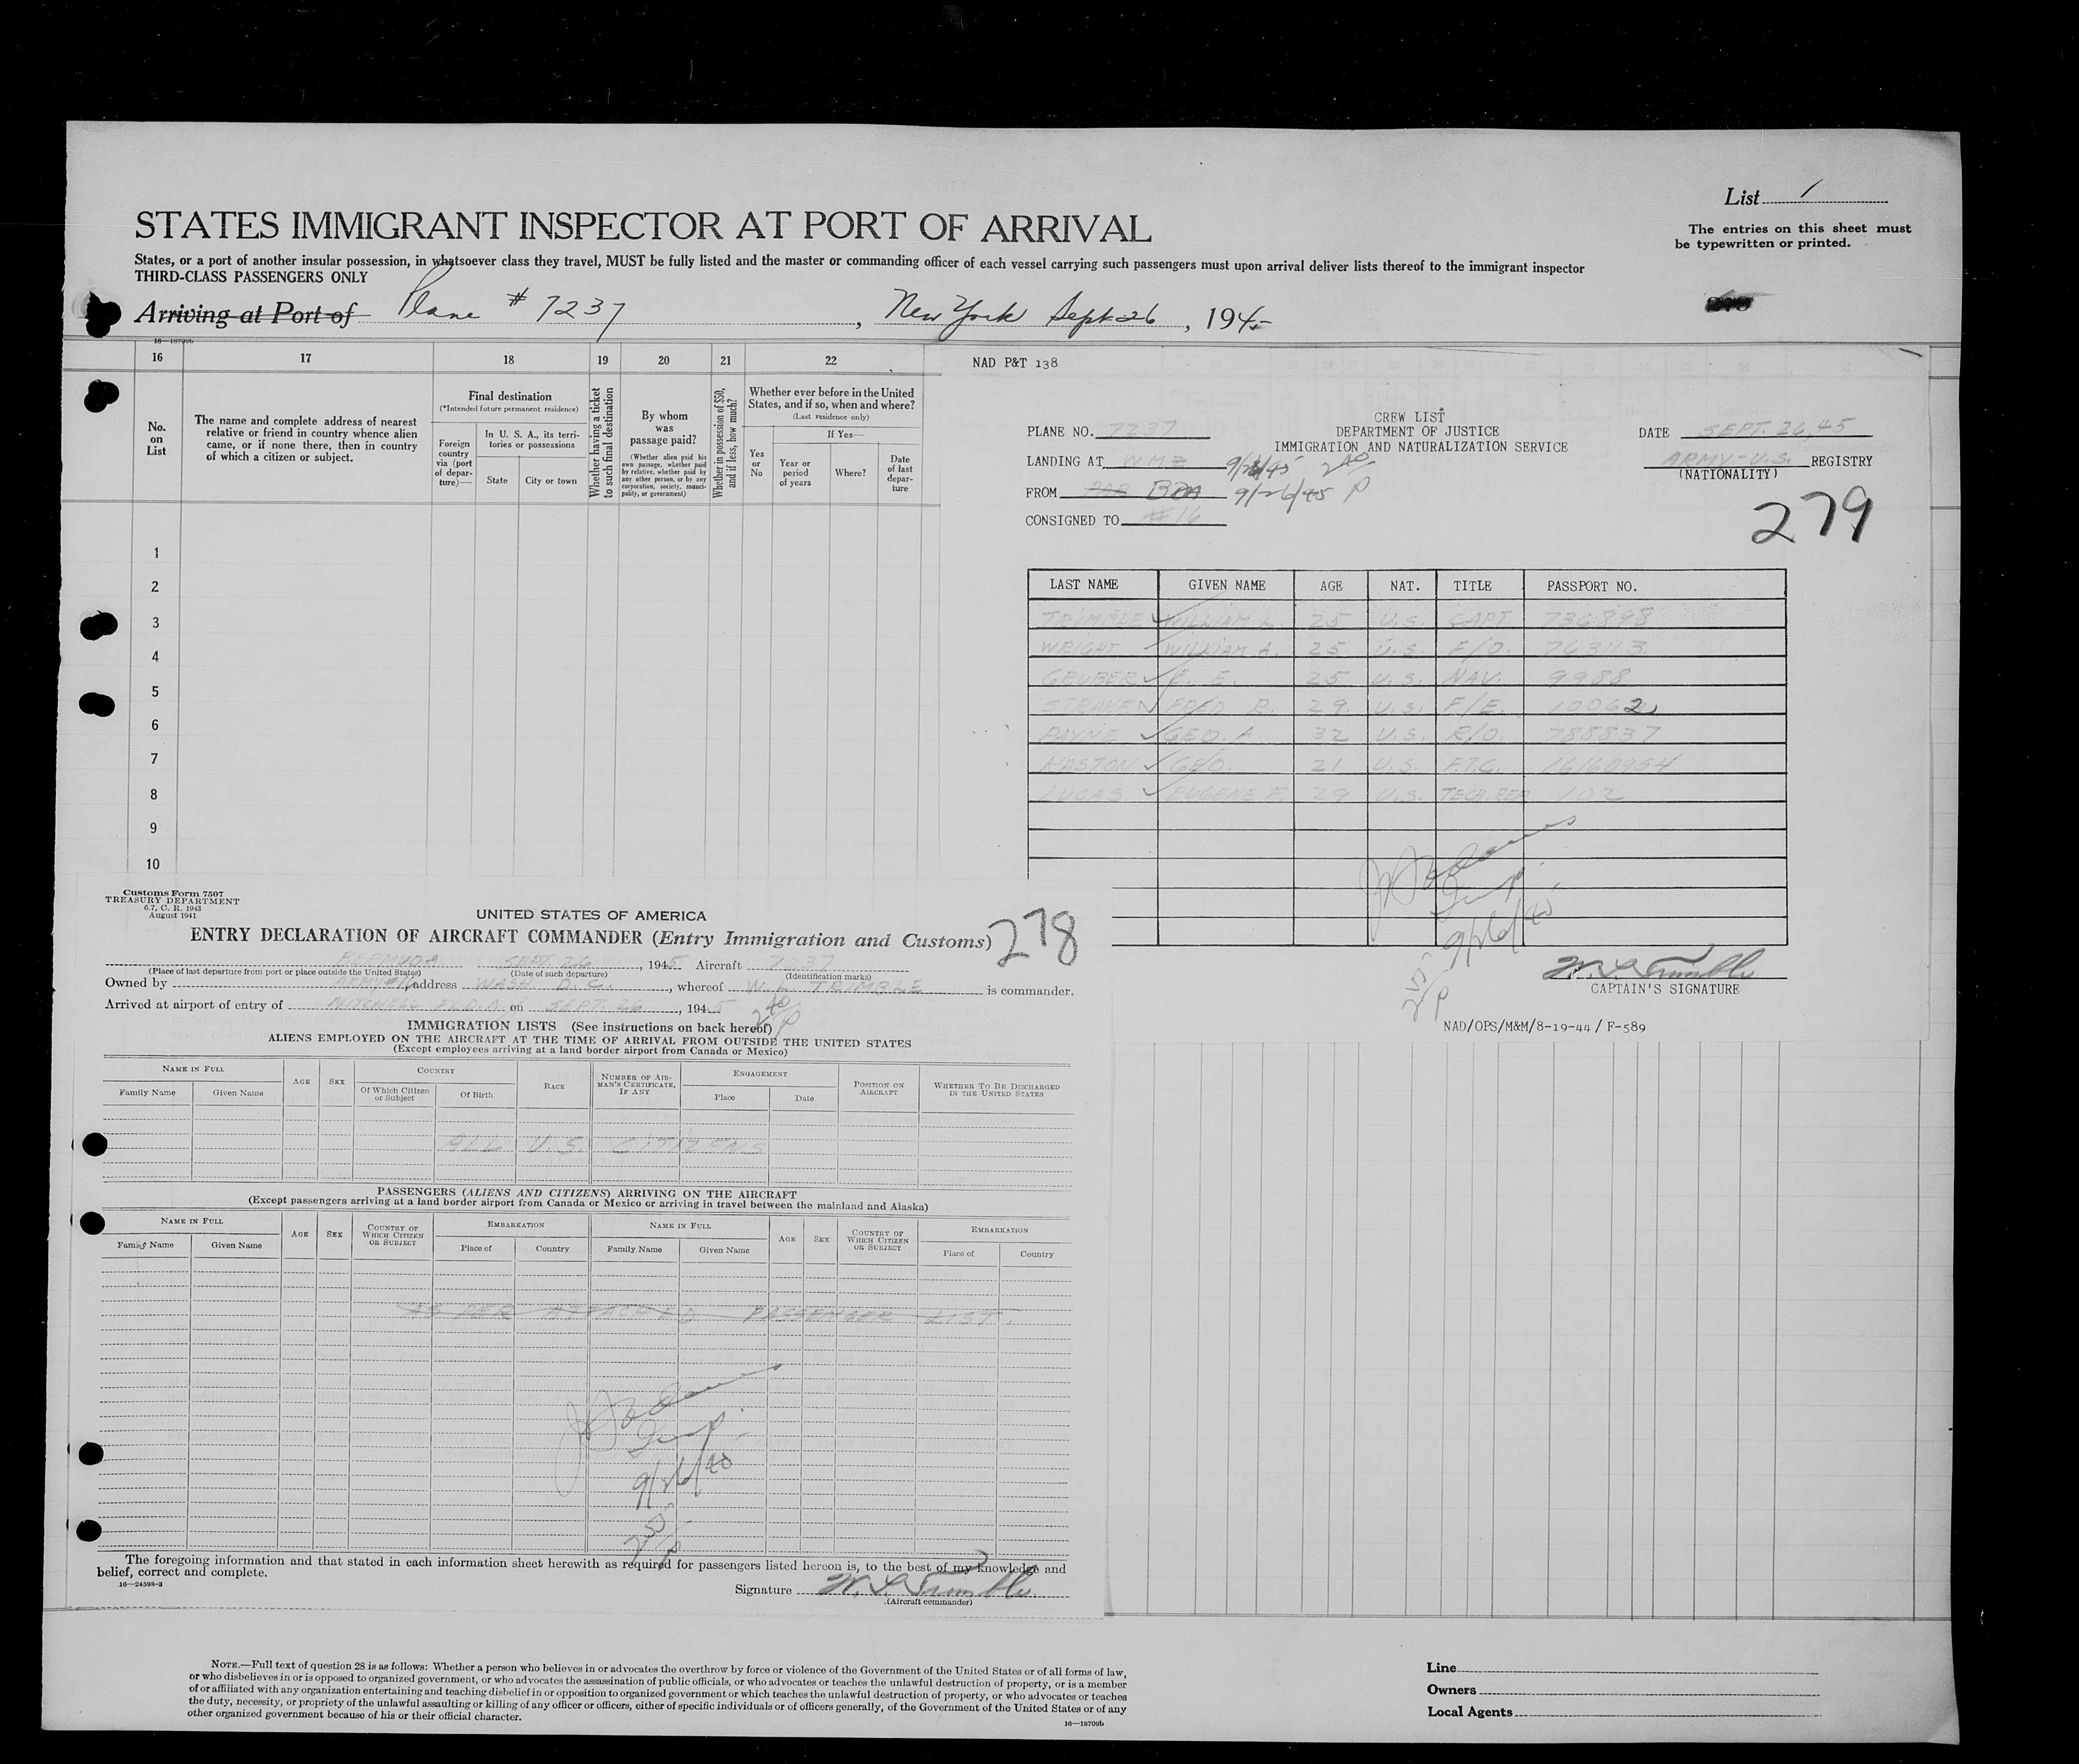 List 1
The entries on this sheet must
be typewritten or printed.
STATES IMMIGRANT INSPECTOR AT PORT OF ARRIVAL
States, or a port of another insular possession, in whatsoever class they travel, MUST be fully listed and the master or commanding officer of each vessel carrying such passengers must upon arrival deliver lists thereof to the immigrant inspector
THIRD-CLASS PASSENGERS ONLY
Arriving at Port of Plane # 7237, New York Sept 26, 1945
16—18709b
16 17 18 19 20 21 22
No. on List
The name and complete address of nearest
relative or friend in country whence alien
came, or if none there, then in country
of which a citizen or subject.
Final destination
(*Intended future permanent residence)
Foreign country via (port of depar-ture)—
In U. S. A., its terri-
tories or possessions
State
City or town
Whether having a ticket
to such final destination
By whom
was
passage paid?
(Whether alien paid his
own passage, whether paid
by relative, whether paid by
any other person, or by any
corporation, society, munici-
pality, or government)
Whether in possession of $50,
and if less, how much?
Whether ever before in the United
States, and if so, when and where?
(Last residence only)
Yes or No
If Yes—
Year or period of years
Where?
Date of last depar-ture
1
2
3
4
5
6
7
8
9
10
NAD P&T 138
CREW LIST
DEPARTMENT OF JUSTICE
IMMIGRATION AND NATURALIZATION SERVICE
PLANE NO. 7237
DATE SEPT. 26, 45
LANDING AT WMZ 9/26/45 240
ARMY-U.S. REGISTRY
(NATIONALITY)
FROM BDA 9/26/45 P
CONSIGNED TO #16
279
LAST NAME GIVEN NAME AGE NAT. TITLE PASSPORT NO.
TRIMBLE WILLIAM L. 25 U.S. CAPT 736898
WRIGHT WILLIAM A. 25 U.S. F/O. 763113
GRUBER E. E. 25 U.S. NAV. 9988
FRED R. 29 U.S. F/E. 10062
PAYNE GEO. A. 32 U.S. R/O. 788837
KASTON GEO. 21 U.S. F.T.C. 16160954
LUCAS EUGENE F. 29 U.S. TECH. REP 102
9/26/45
250
P
W. L. Trimble
CAPTAIN'S SIGNATURE
NAD/OPS/M&M/8-19-44 / F-589
Customs Form 7507
TREASURY DEPARTMENT
6.7, C. R. 1943
August 1941
UNITED STATES OF AMERICA
278
ENTRY DECLARATION OF AIRCRAFT COMMANDER (Entry Immigration and Customs)
BERMUDA SEPT. 26, 1945 Aircraft 7237
(Place of last departure from port or place outside the United States) (Date of such departure) (Identification marks)
Owned by ARMY address WASH. D. C., whereof W. L. TRIMBLE is commander.
Arrived at airport of entry of MITCHELL FLD. N.Y. on SEPT. 26, 1945 240 P
IMMIGRATION LISTS (See instructions on back hereof)
ALIENS EMPLOYED ON THE AIRCRAFT AT THE TIME OF ARRIVAL FROM OUTSIDE THE UNITED STATES
(Except employees arriving at a land border airport from Canada or Mexico)
NAME IN FULL
Family Name Given Name
AGE
SEX
COUNTRY
Of Which Citizen or Subject
Of Birth
RACE
NUMBER OF AIR-MAN'S CERTIFICATE, IF ANY
ENGAGEMENT
Place Date
POSITION ON AIRCRAFT
WHETHER TO BE DISCHARGED IN THE UNITED STATES
ALL U.S. CITIZENS
PASSENGERS (ALIENS AND CITIZENS) ARRIVING ON THE AIRCRAFT
(Except passengers arriving at a land border airport from Canada or Mexico or arriving in travel between the mainland and Alaska)
NAME IN FULL AGE SEX COUNTRY OF WHICH CITIZEN OR SUBJECT EMBARKATION NAME IN FULL AGE SEX COUNTRY OF WHICH CITIZEN OR SUBJECT EMBARKATION
Family Name Given Name Place of Country Family Name Given Name Place of Country
AS PER ATTACHED PASSENGER LIST.
9/26/45
250
P
The foregoing information and that stated in each information sheet herewith as required for passengers listed hereon is, to the best of my knowledge and
belief, correct and complete.
16—24598-3
Signature W. L. Trimble
(Aircraft commander)
NOTE.—Full text of question 28 is as follows: Whether a person who believes in or advocates the overthrow by force or violence of the Government of the United States or of all forms of law,
or who disbelieves in or is opposed to organized government, or who advocates the assassination of public officials, or who advocates or teaches the unlawful destruction of property, or is a member
of or affiliated with any organization entertaining and teaching disbelief in or opposition to organized government or which teaches the unlawful destruction of property, or who advocates or teaches
the duty, necessity, or propriety of the unlawful assaulting or killing of any officer or officers, either of specific individuals or of officers generally, of the Government of the United States or of any
other organized government because of his or their official character.
16—18709b
Line
Owners
Local Agents